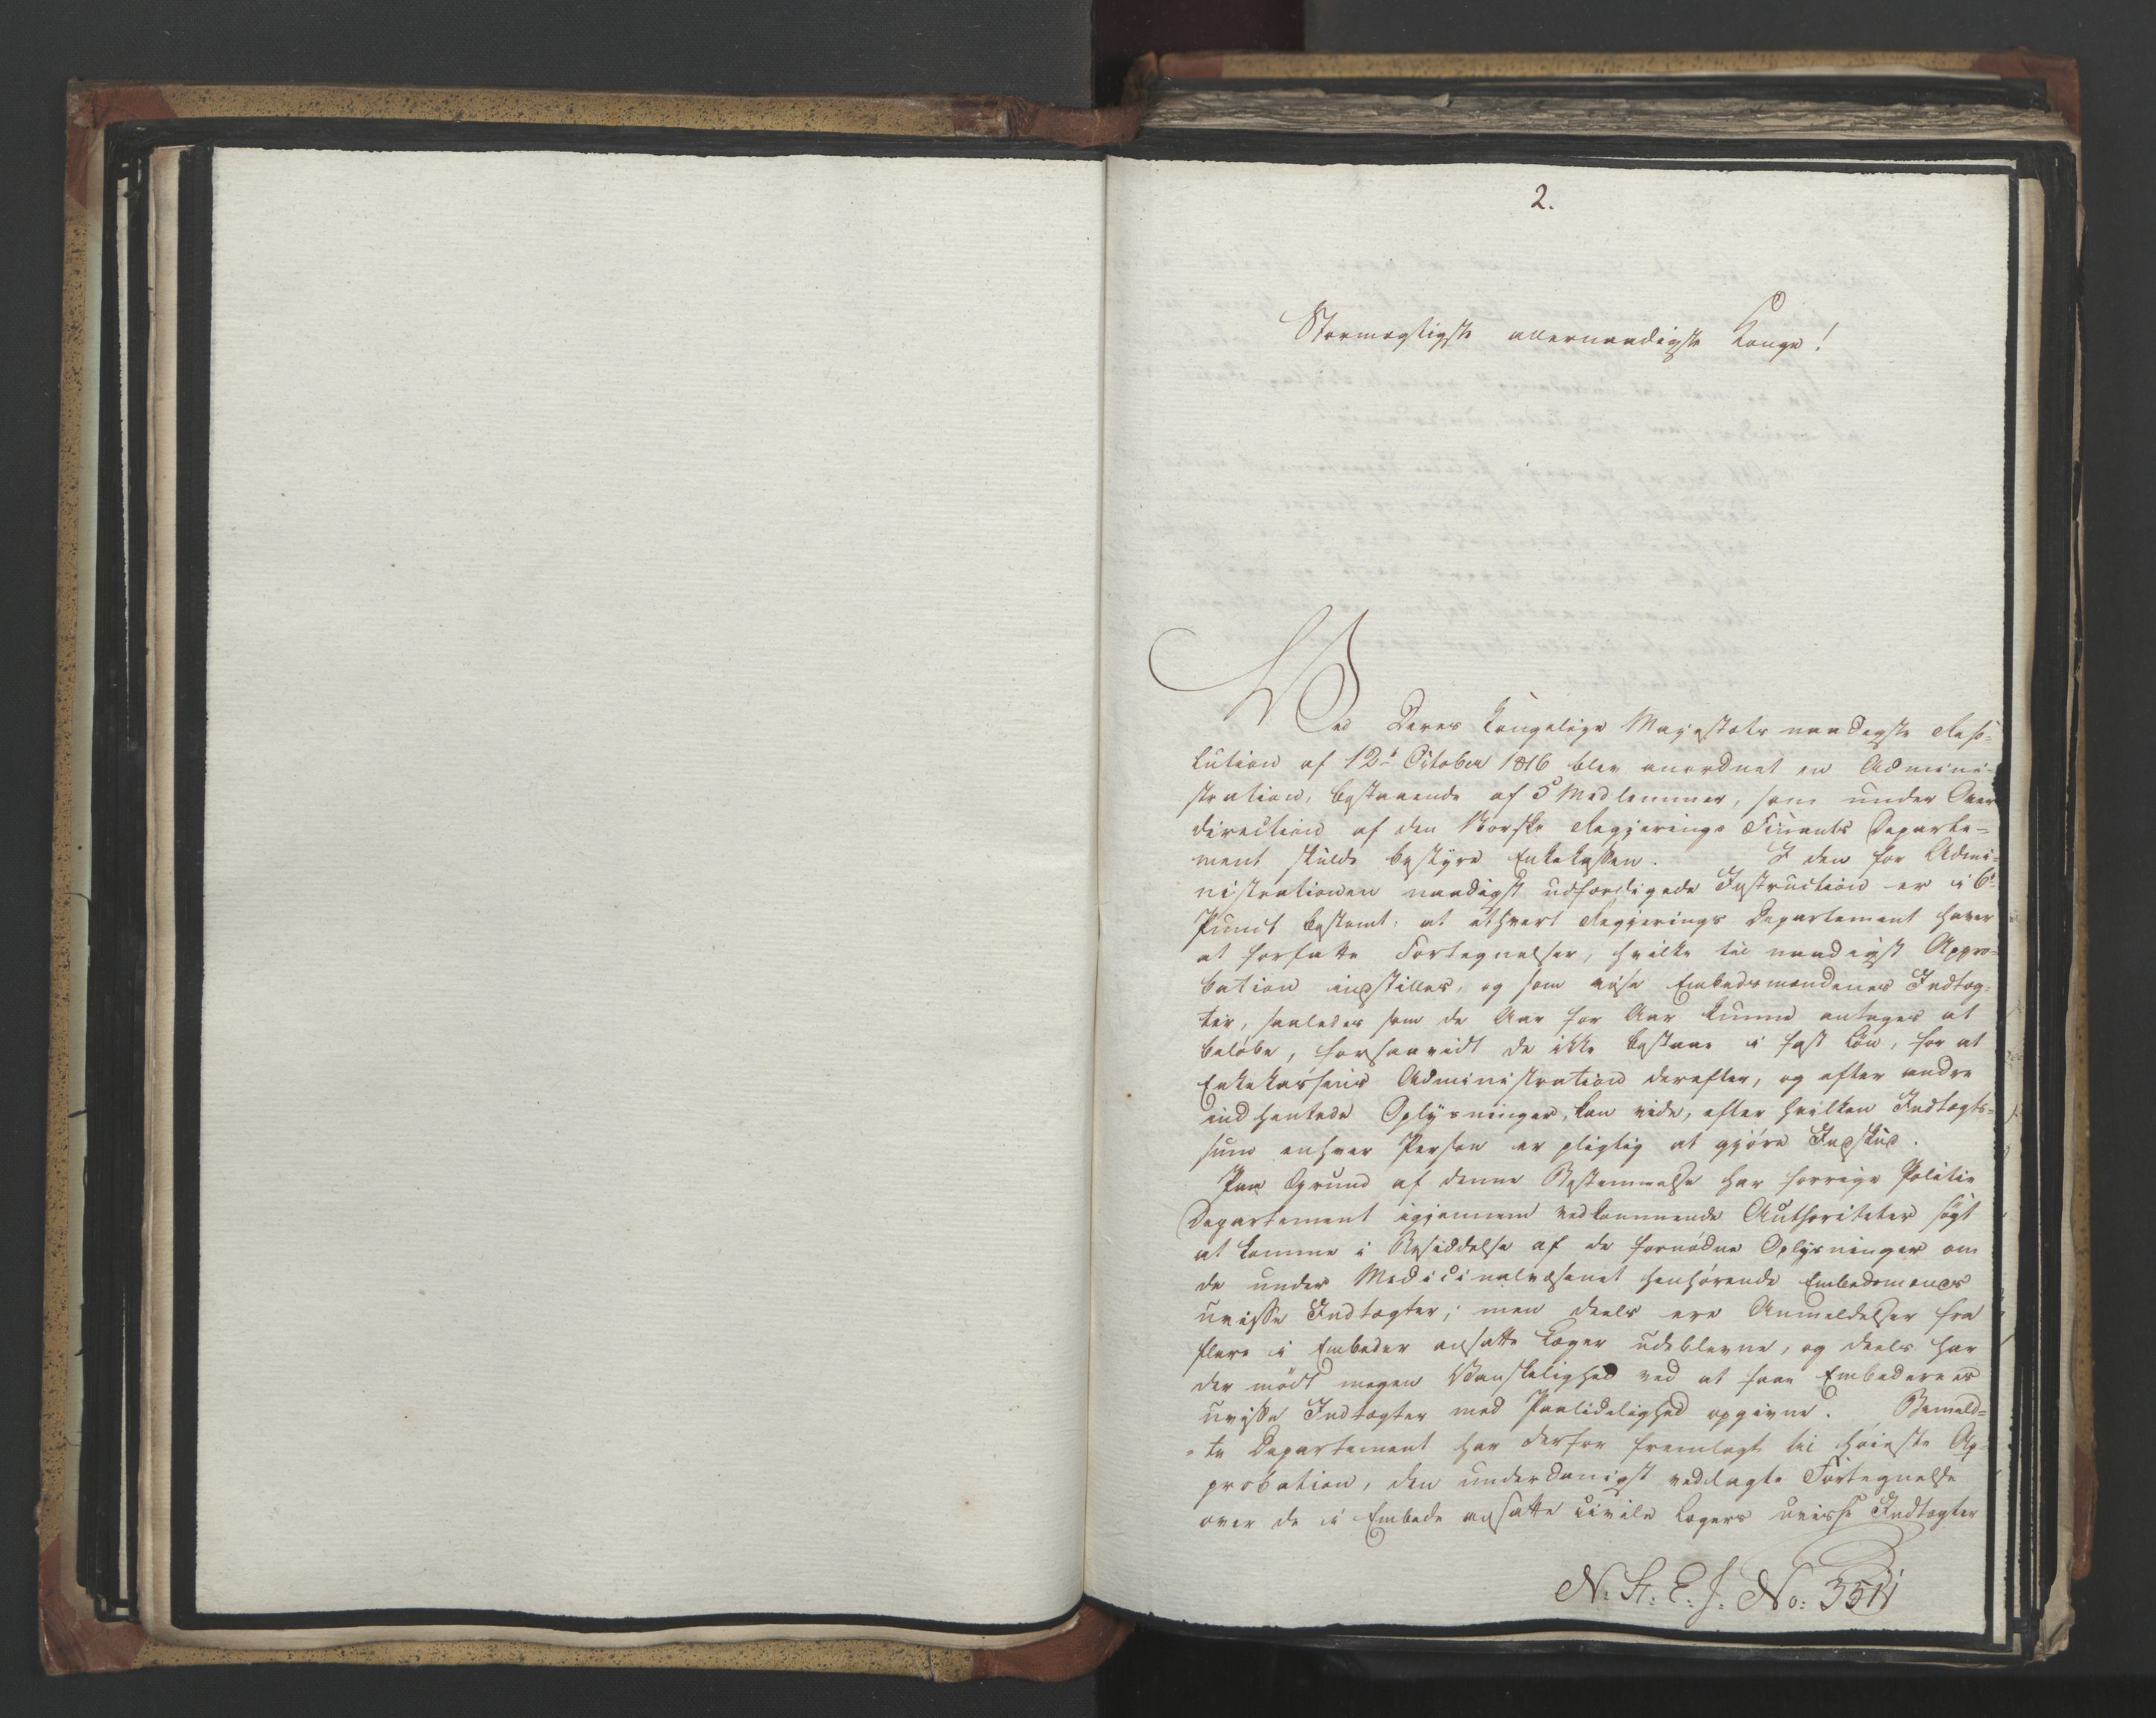 2.
Stormægtigste allernaadigste Konge!
Ved Deres Kongelige Majestæts naadigste Reso-
lution af 12te October 1816 blev anordnet en Admini-
stration, bestaaende af 5 Medlemmer, som under Over
direction af den Norske Regjerings Finants Departe-
ment skulde bestyre Enkekassen. I den for Admi-
nistrationen naadigst udfærdigede Instruction er i 6te
Punct bestemt: at ethvert Regjerings Departement haver
at forfatte Fortegnelser, hvilke til naadigst Appro-
bation indstilles, og som vise Embedsmændenes Indtæg-
ter, saaledes som de Aar for Aar kunne antages at
beløbe, forsaavidt de ikke bestaae i fast Løn, for at
Enkekassens Administration derefter, og efter andre
indhentede Oplysninger, kan vide, efter hvilken Indtægts-
sum enhver Person er pligtig at gjøre Indskud.
Paa Grund af denne Bestemmelse har forrige Politie
Departement igjennem vedkommende Authoriteter søgt
at komme i Besiddelse af de fornødne Oplysninger om
de under Medicinalvæsenet henhørende Embedsmænds
uvisse Indtægter; men deels ere Anmeldelser fra
flere i Embeder ansatte Læger udeblevne, og deels har
der mødt megen Vanskelighed ved at faae Embedernes
uvisse Indtægter med Paalidelighed opgivne. Bemeld-
te Departement har derfor fremlagt til høieste Ap-
probation, den underdanigst vedlagte Fortegnelse
over de i Embede ansatte civile Lægers uvisse Indtægter
N. St. E. J. No: 3511